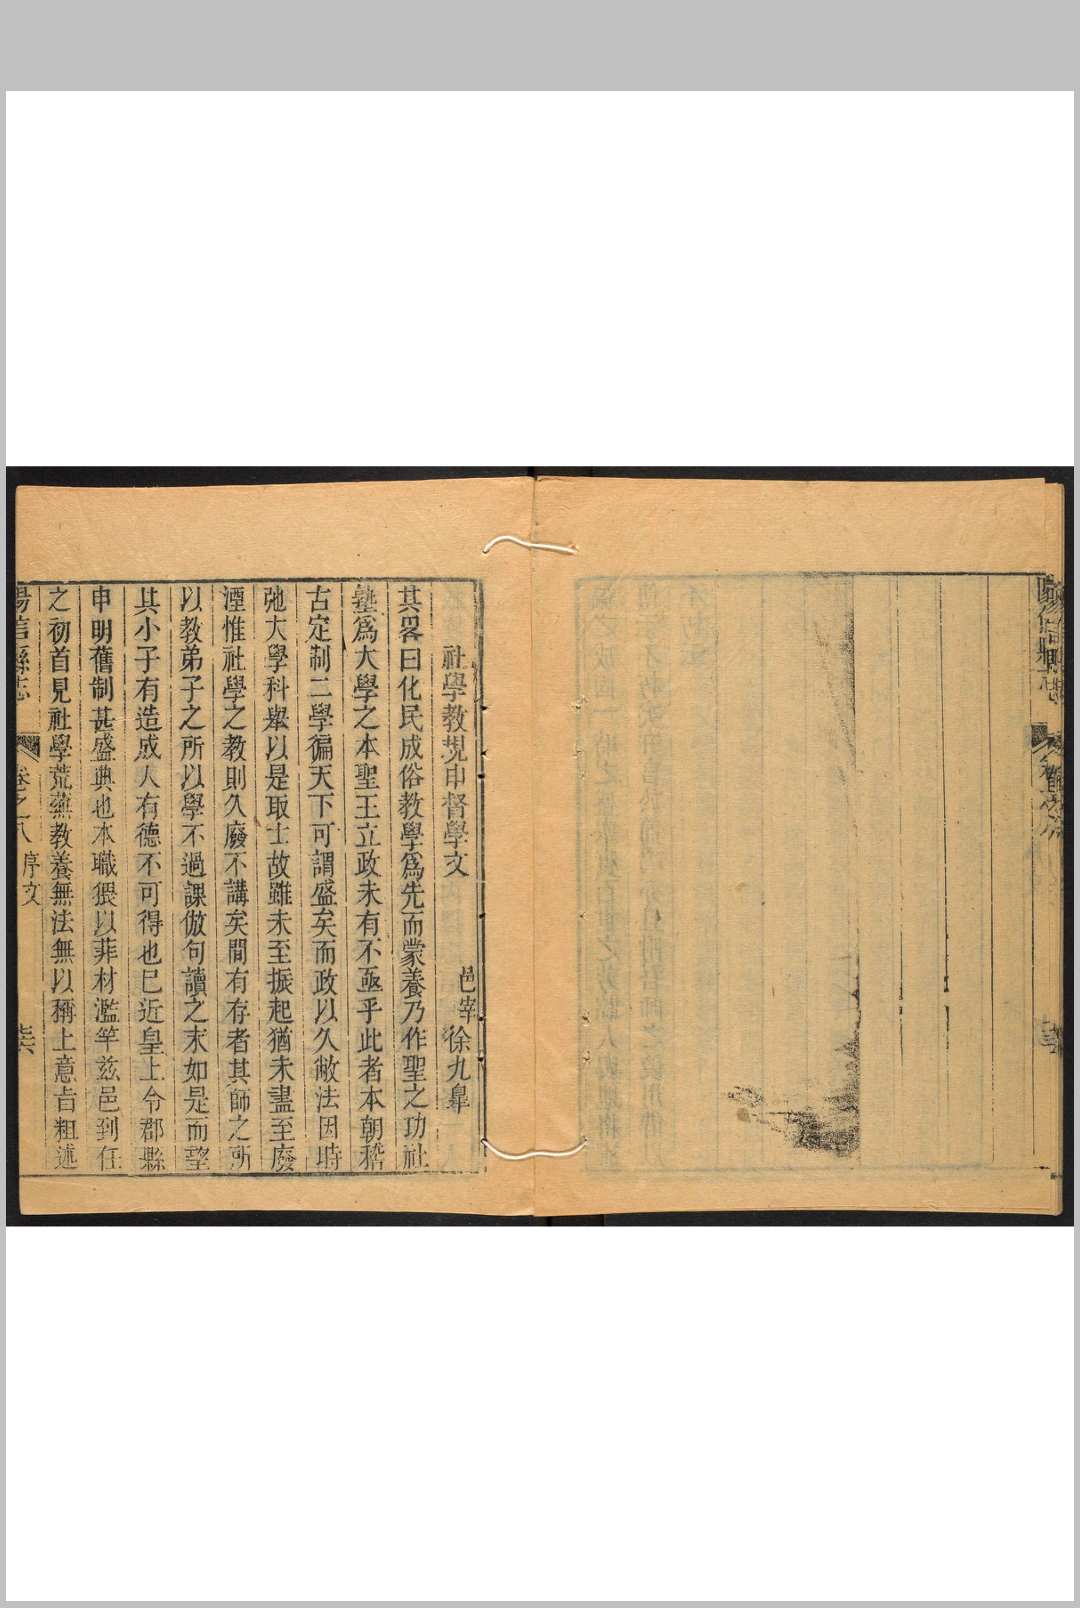 社學教規申督學文
邑宰徐九皐
其畧曰化民成俗教學爲先而蒙養乃作聖之功社
塾爲大學之本聖王立政未有不亟乎此者本朝稽
古定制二學徧天下可謂盛矣而政以久敝法因時
弛大學科舉以是取士故雖未至振起猶未盡至廢
湮惟社學之教則久廢不講矣間有存者其師之所
以教弟子之所以學不過課倣句讀之末如是而望
其小子有造成人有德不可得也巳近皇上令郡縣
申明舊制甚盛典也本職猥以菲材濫竽兹邑到任
之初首見社學荒蕪教養無法無以稱上意㫖粗述
陽信縣志
卷之八
序文